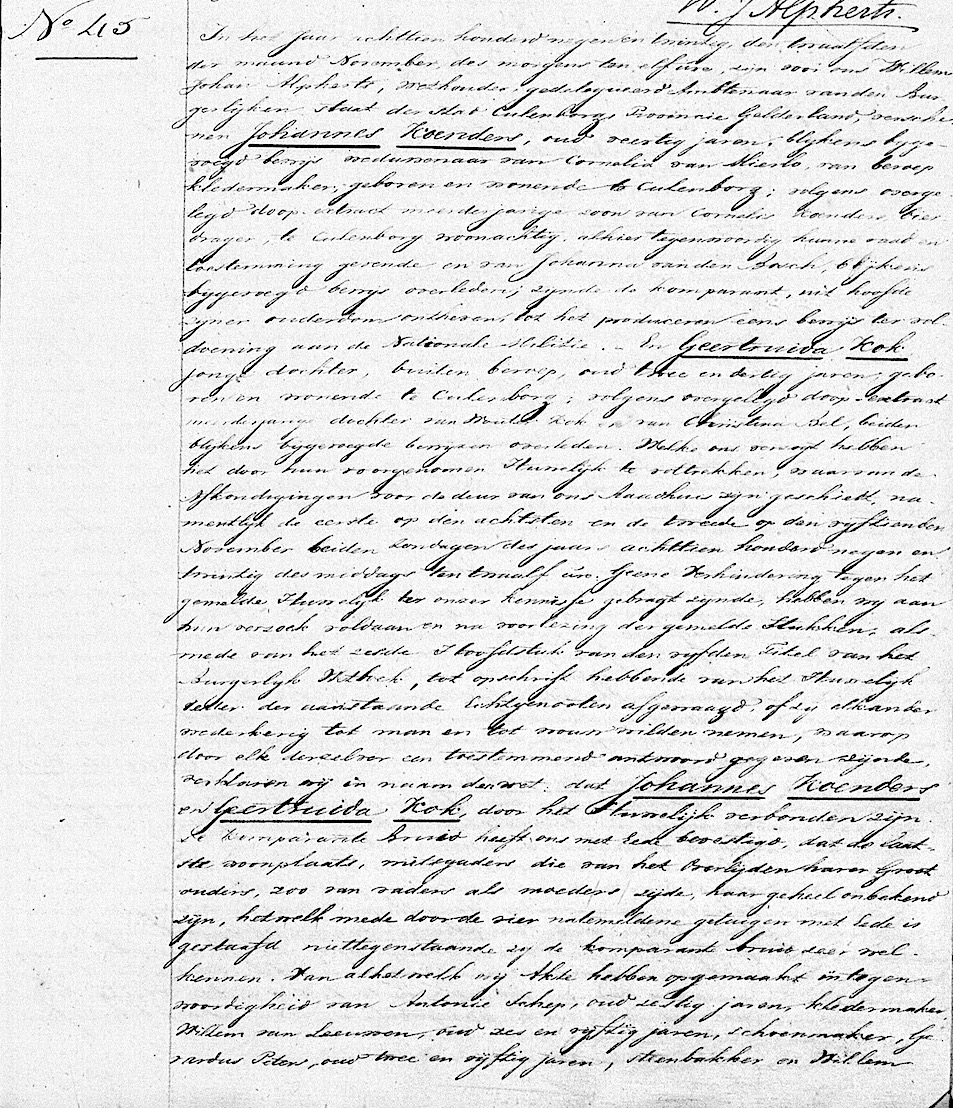 W. J Alpherts.
No 45
In het jaar achttien honderd negen en twintig, den twaalfden
der maand November, des morgens ten elf ure, zijn voor ons Willem
Johan Alpherts, wethouder, gedelegueerd Ambtenaar van den Bur-
gerlijken staat der Stad Culenborg Provincie Gelderland, versche-
nen Johannes Koenders, oud veertig jaren, blijkens byge-
voegd bewijs weduwenaar van Cornelia van Mierlo, van beroep
kledermaker, geboren en wonende te Culenborg; volgens overge-
legd doop-extract meerderjarige zoon van Cornelis Koenders, bier
drager, te Culenborg woonachtig, alhier tegenwoordig zynde en
toestemming gevende en van Johanna van den Bosch, blijkens
bygevoegd bewijs overleden; zynde de komparant, uit hoofde
zyner ouderdom ontheven, tot het produceren eens bewijs ter vol-
doening aan de Nationale Militie. - En Geertruida Kok
jonge dochter, buiten beroep, oud twee en dertig jaren, gebo-
ren en wonende te Culenborg; volgens overgelegd doop-extract
meerderjarige dochter van Wouter Kok en van Christina Bel, beiden
blijkens bygevoegde bewyzen overleden. Welke ons verzogt hebben
het door hun voorgenomen Huwelijk te voltrekken, waarvan de
afkondigingen voor de deur van ons Raadhuis zijn geschiedt, na-
mentlijk de eerste op den achtsten en de tweede op den vyftienden
November beiden Zondagen des jaars achttien honderd negen en
twintig des middags ten twaalf ure. Geene Verhindering tegen het
gemelde Huwelijk ter onzer kennisse gebragt zynde, hebben wy aan
hun verzoek voldaan en na voorlezing der gemelde Stukken, als
mede van het zesde Hoofdstuk van den vyfden Titel van het
Burgerlyk Wetboek, tot opschrift hebbende van het Huwelijk
ieder der aanstaande Echtgenooten afgevraagd, of zy elkander
wederkerig tot man en tot vrouw wilden nemen, waarop
door elk derzelver een toestemmend antwoord gegeven zijnde,
verklaren wij in naam der wet, dat Johannes Koenders
en Geertruida Kok, door het Huwelijk verbonden zijn.
De Komparante Bruid heeft ons met Eede bevestigd, dat de laat-
ste woonplaats, mitsgaders die van het Overlijden harer Groot
ouders, zoo van vaders als moeders zijde, haar geheel onbekend
zijn, het welk mede door de vier natemeldene getuigen met Eede is
gestaafd niettegenstaande zy de komparante bruid zeer wel
kennen. Van al hetwelk wij Akte hebben opgemaakt in tegen-
woordigheid van Antonie Schep, oud zestig jaren, kledermaker
Willem van Leeuwen, oud zes en vyftig jaren, schoenmaker, Ge-
rardus Peters, oud twee en vijftig jaren, steenbakker en Willem